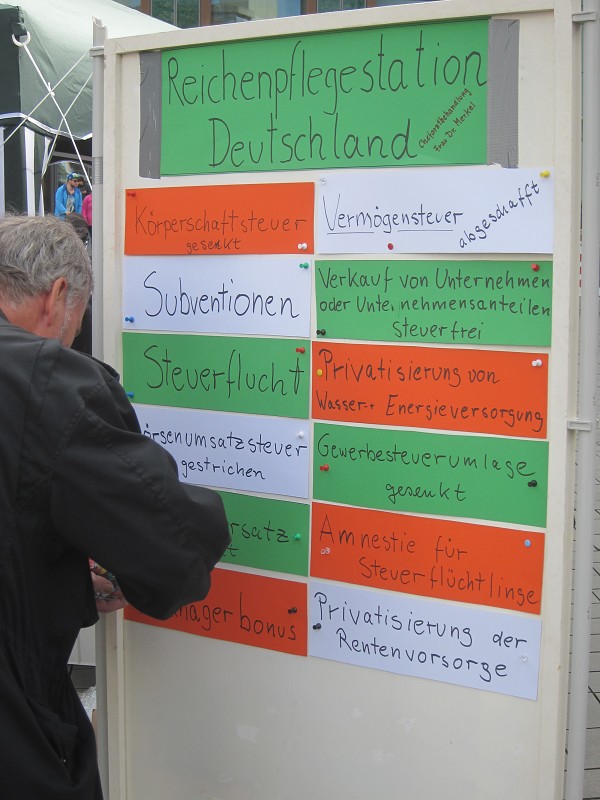 Reichenpflegestation
Deutschland
Chefarztbehandlung
Frau Dr. Merkel
Körperschaftsteuer
gesenkt
Vermögensteuer
abgeschafft
Subventionen
Verkauf von Unternehmen
oder Unternehmensanteilen
steuerfrei
Steuerflucht
Privatisierung von
Wasser- + Energieversorgung
örsenumsatzsteuer
gestrichen
Gewerbesteuerumlage
gesenkt
ersatz
Amnestie für
Steuerflüchtlinge
nagerbonus
Privatisierung der
Rentenvorsorge